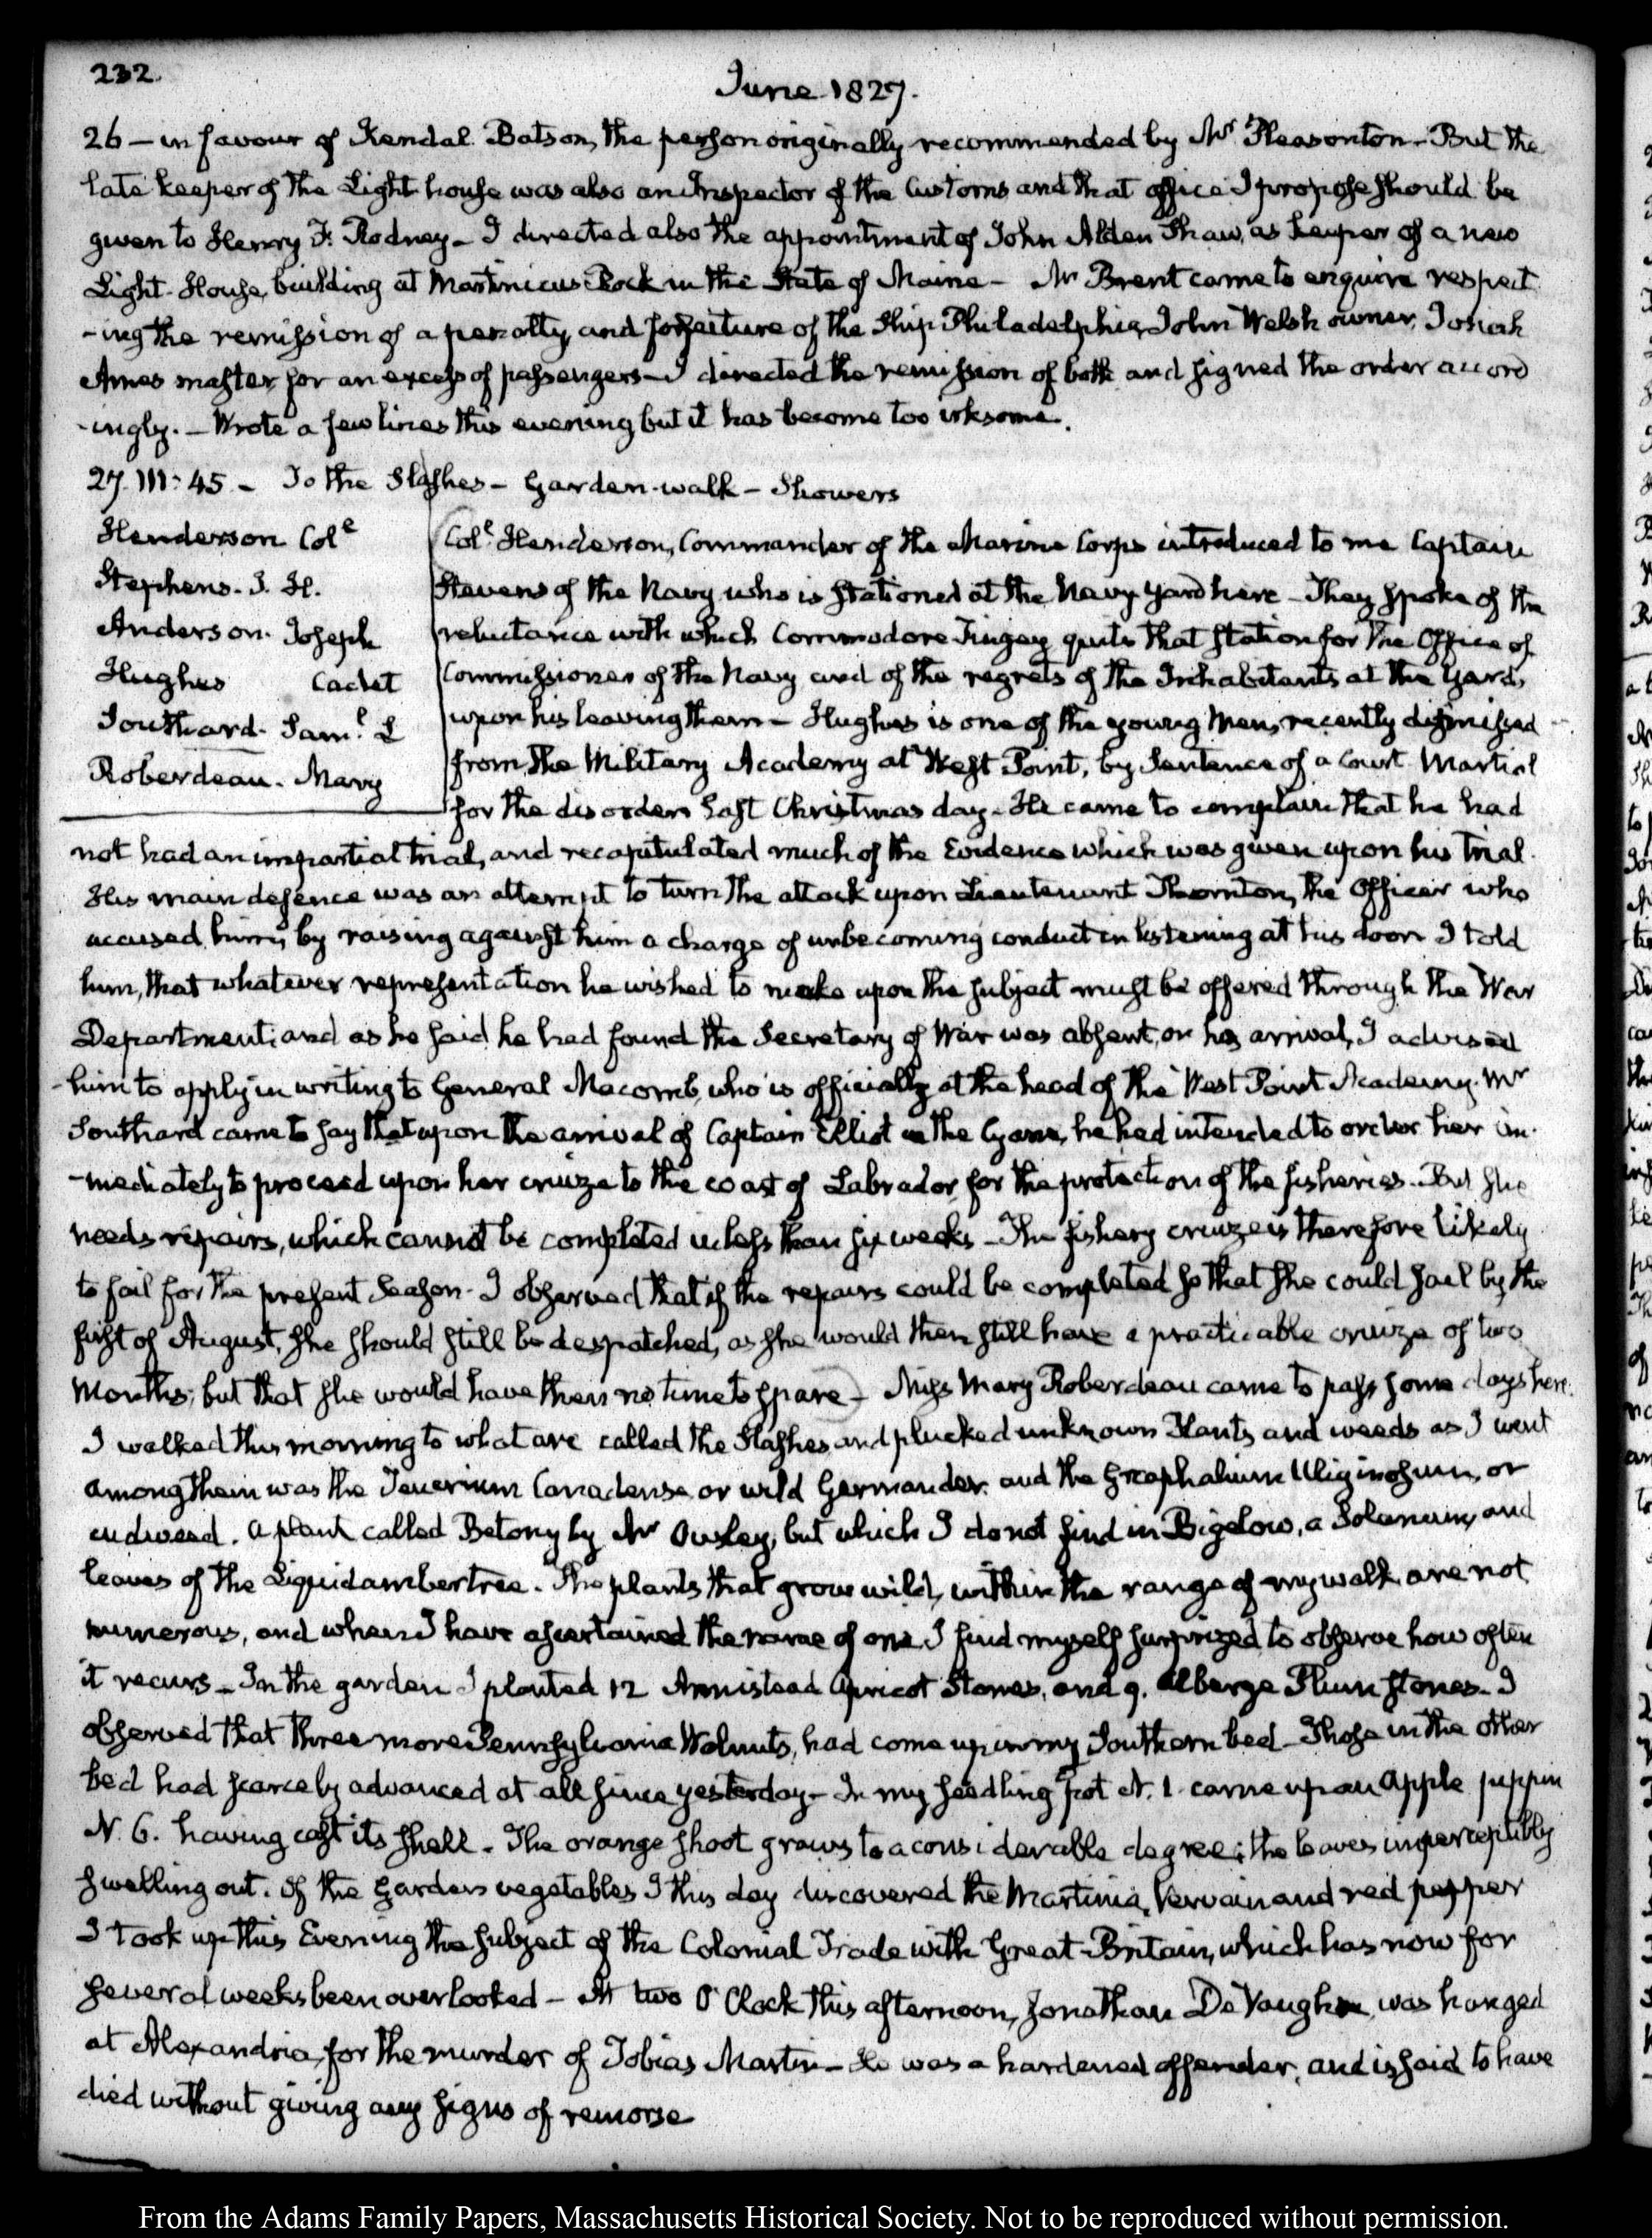 232.
June 1827.
26 — in favour of Kendal Batson, the person originally recommended by Mr Pleasonton. But the
late keeper of the Light house was also an Inspector of the Customs and that office I propose should be
given to Henry F. Rodney — I directed also the appointment of John Alden Shaw, as keeper of a new
Light-House, building at Martinicus Rock in the State of Maine — Mr Brent came to enquire respect
-ing the remission of a penalty, and forfeiture of the Ship Philadelphia, John Welsh owner, Josiah
Ames master, for an excess of passengers — I directed the remission of both and signed the order accord
-ingly. — Wrote a few lines this evening but it has become too irksome.
27. III: 45 — To the Slashes — Garden-walk — Showers
Henderson Coll
Stephens. J. H.
Anderson. Joseph
Hughes Cadet
Southard. Saml. L
Roberdeau. Mary
Coll. Henderson, Commander of the Marine Corps introduced to me Captain
Stevens of the Navy who is stationed at the Navy Yard here — They spoke of the
reluctance with which Commodore Tingey quits that station for the Office of
Commissioner of the Navy and of the regrets of the Inhabitants at the Yard,
upon his leaving them — Hughes is one of the young Men, recently dismissed
from the Military Academy at West Point, by Sentence of a Court Martial
for the disorders last Christmas day. He came to complain that he had
not had an impartial trial, and recapitulated much of the Evidence which was given upon his trial.
His main defence was an attempt to turn the attack upon Lieutenant Thornton, the Officer who
accused him, by raising against him a charge of unbecoming conduct in listening at his door I told
him, that whatever representation he wished to make upon the subject must be offered through the War
Department; and as he said he had found the Secretary of War was absent, on his arrival, I advised
him to apply in writing to General Macomb, who is officially at the head of the West Point Academy. Mr
Southard came to say that upon the arrival of Captain Elliot in the Cyane, he had intended to order her im-
-mediately to proceed upon her cruize to the coast of Labrador for the protection of the fisheries. But she
needs repairs, which cannot be completed in less than six weeks — The fishery cruize is therefore likely
to fail for the present Season. I observed that if the repairs could be completed so that she could sail by the
first of August, she should still be despatched, as she would then still have a practicable cruize of two
Months; but that she would have then no time to spare — Miss Mary Roberdeau came to pass some days here.
I walked this morning to what are called the Slashes and plucked unknown Plants and weeds as I went
among them was the Teucrium Canadense or wild Germander and the Gnaphalium Uliginosum, or
cudweed. a plant called Betony by Mr Ousley, but which I do not find in Bigelow, a Solanum, and
leaves of the Liquidambertree. The plants that grow wild, within the range of my walk are not
numerous, and when I have ascertained the name of one, I find myself surprized to observe how often
it recurs — In the garden I planted 12 Annistead Apricot Stones, and 9. Alberge Plum stones. I
observed that three more Pennsylvania Walnuts, had come up in my Southern bed — Those in the other
bed had scarcely advanced at all since yesterday — In my seedling pot N. 1. came up an Apple pippin
N. 6. having cast its shell. The orange shoot grows to a considerable degree; the leaves imperceptibly
swelling out. Of the Garden vegetables I this day discovered the Martinia, Vervain and red pepper
I took up this Evening the subject of the Colonial Trade with Great-Britain, which has now for
several weeks been overlooked — At two O'Clock this afternoon, Jonathan De Vaughn, was hanged
at Alexandria, for the murder of Tobias Martin — He was a hardened offender, and is said to have
died without giving any signs of remorse
From the Adams Family Papers, Massachusetts Historical Society. Not to be reproduced without permission.